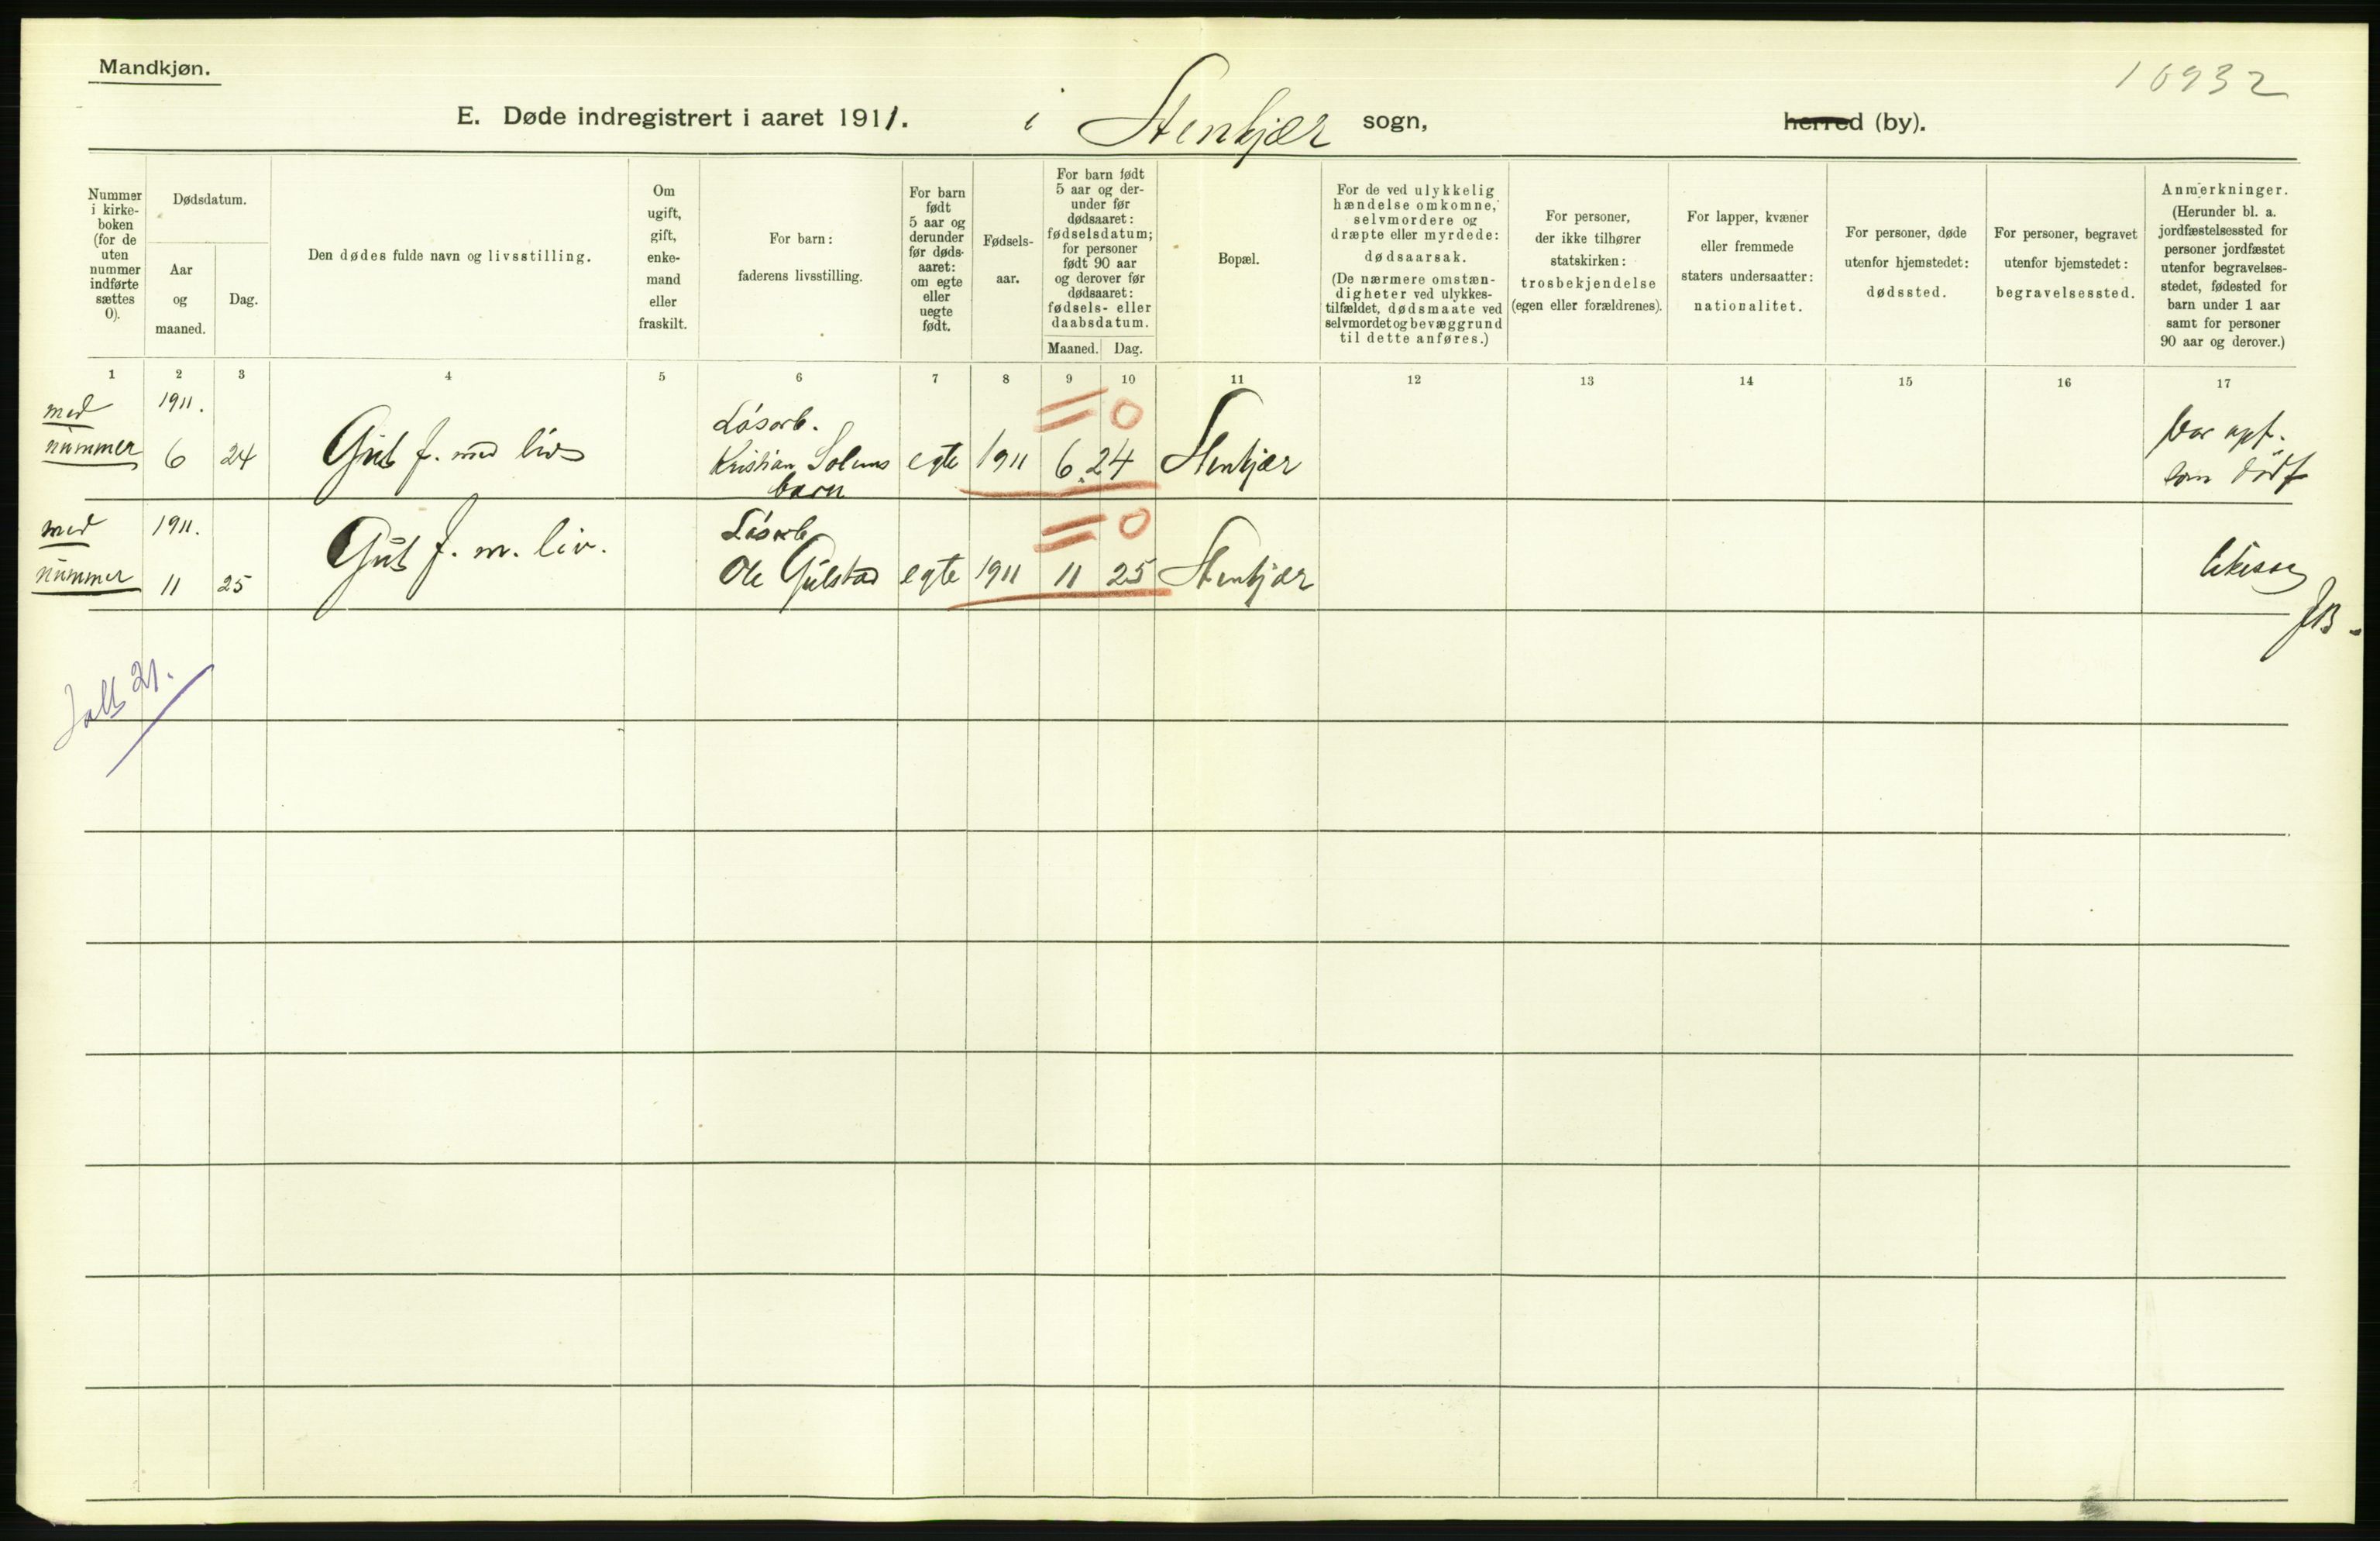 Mandkjøn.
10932
E. Døde indregistrert i aaret 1911. i Stenkjær sogn, herred (by).
Nummer
i kirke-
boken
(for de
uten
nummer
indførte
sættes
0).
Dødsdatum.
Aar
og
maaned.
Dag.
Den dødes fulde navn og livsstilling.
Om
ugift,
gift,
enke-
mand
eller
fraskilt.
For barn:
faderens livsstilling.
For barn
født
5 aar og
derunder
før døds-
aaret:
om egte
eller
uegte
født.
Fødsels-
aar.
For barn født
5 aar og der-
under før
dødsaaret:
fødselsdatum;
for personer
født 90 aar
og derover før
dødsaaret:
fødsels- eller
daabsdatum.
Maaned.
Dag.
Bopæl.
For de ved ulykkelig
hændelse omkomne,
selvmordere og
dræpte eller myrdede:
dødsaarsak.
(De nærmere omstæn-
digheter ved ulykkes-
tilfældet, dødsmaate ved
selvmordet og bevæggrund
til dette anføres.)
For personer,
der ikke tilhører
statskirken:
trosbekjendelse
(egen eller forældrenes).
For lapper, kvæner
eller fremmede
staters undersaatter:
nationalitet.
For personer, døde
utenfor hjemstedet:
dødssted.
For personer, begravet
utenfor bjemstedet:
begravelsessted.
Anmerkninger.
(Herunder bl. a.
jordfæstelsessted for
personer jordfæstet
utenfor begravelses-
stedet, fødested for
barn under 1 aar
samt for personer
90 aar og derover.)
1 2 3 4 5 6 7 8 9 10 11 12 13 14 15 16 17
med 1911. Løsarb. = 0 Var opf.
nummer 6 24 Gut f. med liv Kristian Solems egte 1911 6 24 Stenkjær som dødf
barn
med 1911. Løsarb = 0
nummer 11 25 Gut f. m. liv. Ole Gulstad egte 1911 11 25 Stenkjær likesaa
JB.
21.